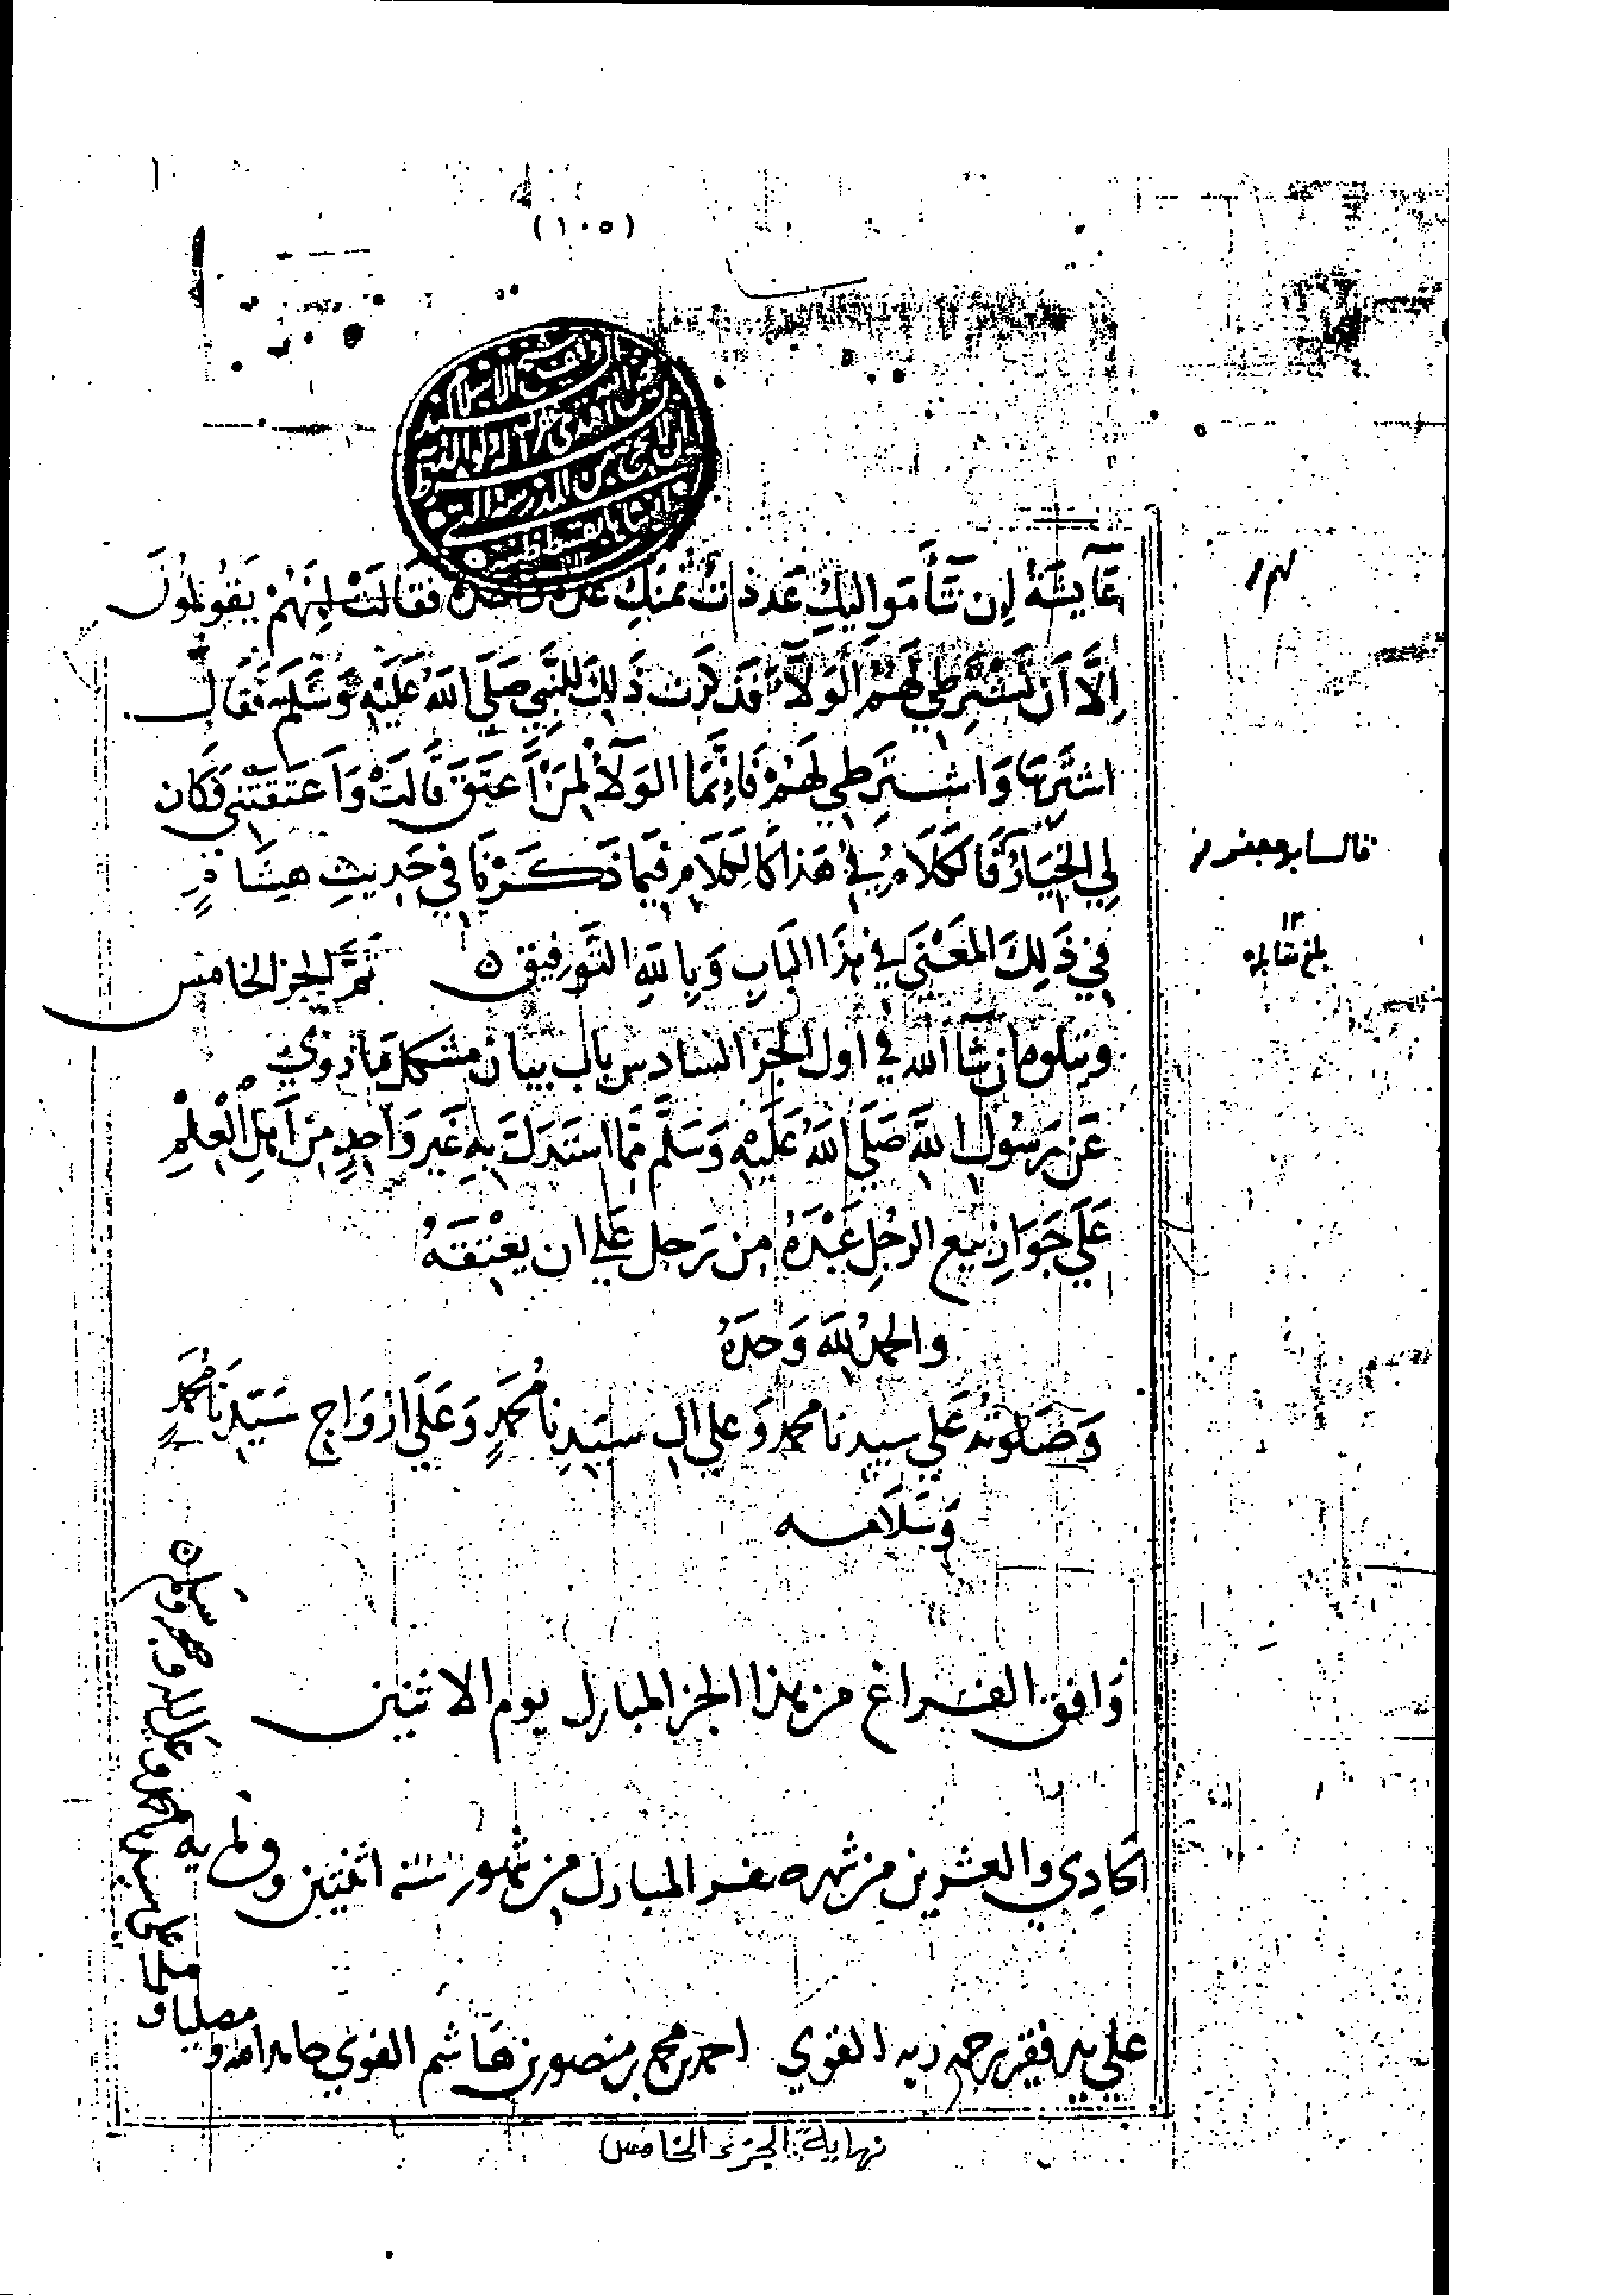 (١٠٥)
عَآيِشَةُ إن شَآءَ مَوَاليكِ عَددتُ ثمنكِ فقَالَتْ إنَّهُمْ يَقُولُونَ
إلَّا أن تَشْتَرِطي لَهُمُ الوَلَآءَ فَذكرَتْ ذَلِكَ لِلنَّبِي صَلَّى اللهُ عَلَيْهِ وَسَلَّمَ فقَال
اشتَرِيهَا وَاشتَرِطي لَهُمْ فَإنَّمَا الوَلَآءُ لِمَنْ أعتَقَ قَالَتْ وَأعتَقَتْنِي فَكَان
لِي الخِيَارُ فَالكَلَامُ فِي هَذَا كَالكَلَامِ فِيمَا ذَكَرْنَا فِي حَدِيثِ هِشَامٍ
قال ابو جعفر
في ذَلِكَ المَعْنَى في هذَا البَابِ وَبِاللهِ التَّوفيق ٥ تَمَّ الجز الخامس
بلغ مقابلة
ويتلوه ان شا الله في اول الجز السادس باب بيان مشكل مَا رُوي
عَن رَسُولِ اللهِ صَلَّى اللهُ عَلَيْهِ وَسَلَّم مما استدلَّ بِهِ غَير وَاحِدٍ مِنْ أهْلِ الْعِلْمِ
عَلَى جَوَازِ بَيع الرجُلِ عَبْدَهُ من رَجل عَلى ان يعْتِقَهُ
والحمدُ للهِ وَحدَهُ
وَصَلَوتُهُ عَلى سيدنا محمد وَعلى ال سَيِّدِنَا مُحَمَّدٍ وَعَلَى ازوَاجِ سَيِّدِنَا مُحَمَّدٍ
وَسَلَامه
وَافق الفراغ من هذا الجز المبارك يوم الاثنين
الحادي والعشرين من شهر صفر المبارك من شهور سنه اثنتين و
على يد فقير رحمة ربه القوي احمد بن محمد بن منصور بن هَاشم القوي حامدا لله و
مصليا و
نهاية الجزء الخامس